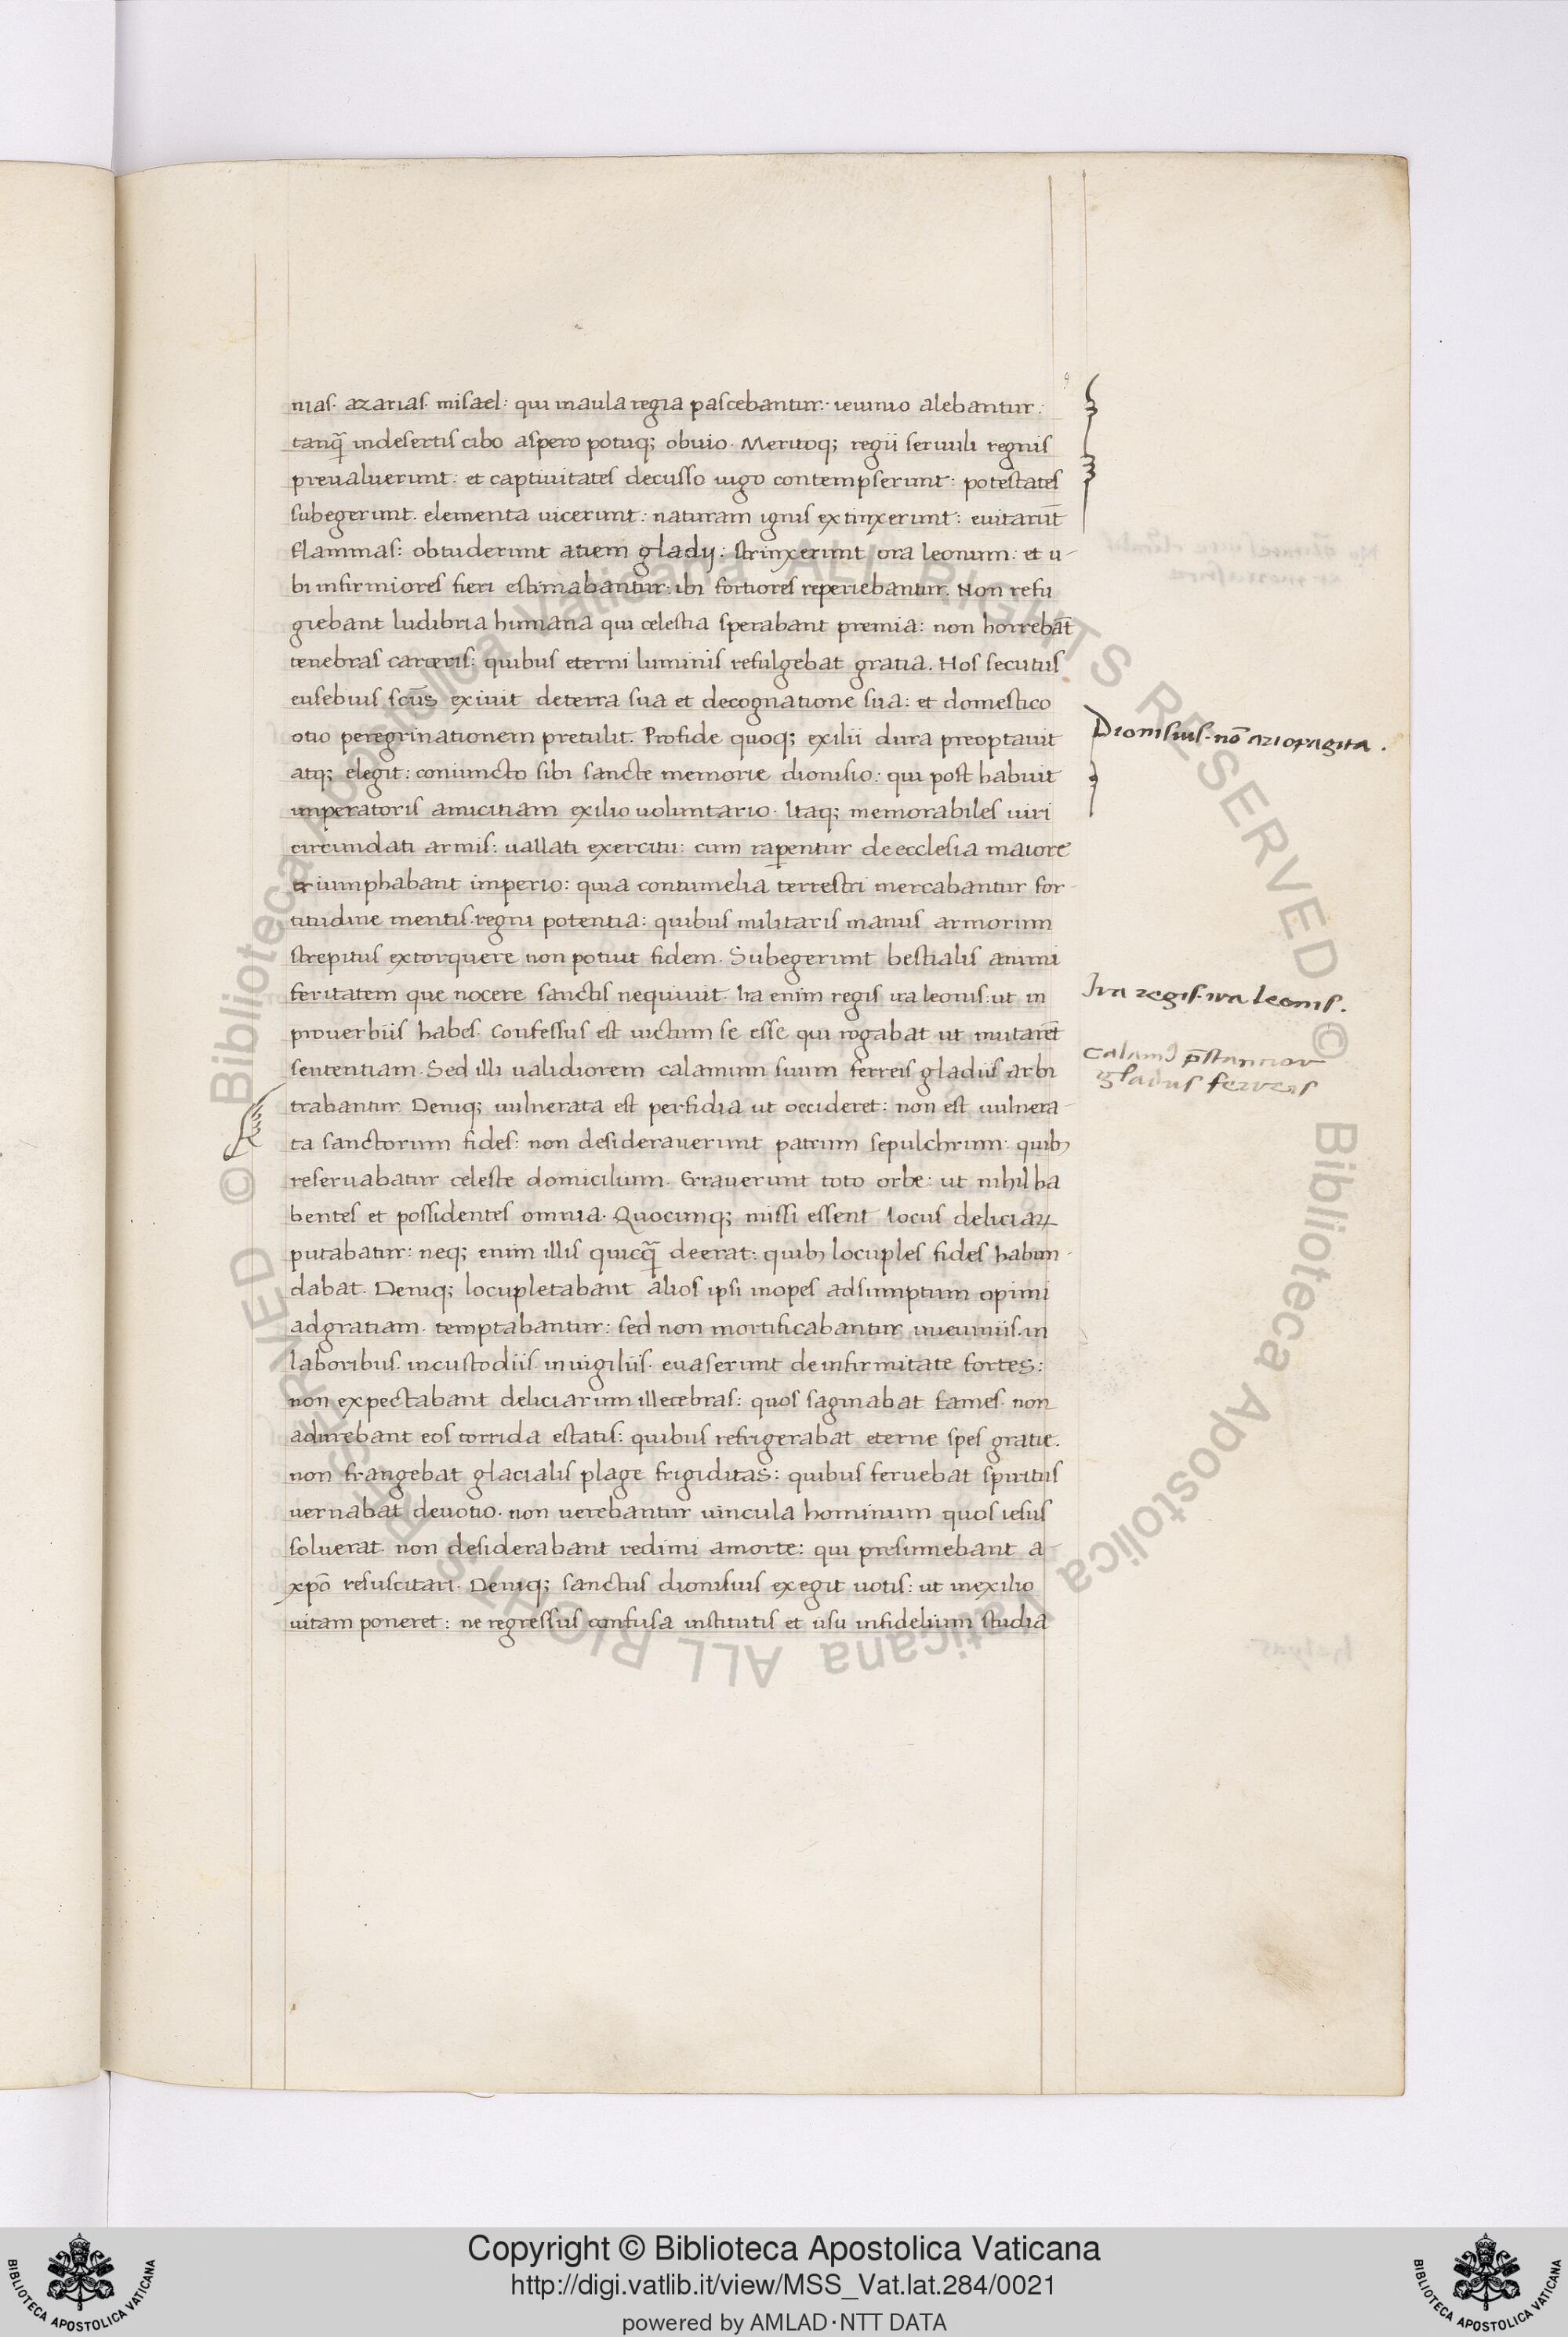 nias. azarias. misael: qui inaula regia pascebantur: ieiunio alebantur:
tanq̃ indesertis cibo aspero potuq; obuio. Meritoq; regii seruuli regnis
preualuerunt: et captiuitates decusso iugo contempserunt: potestates
subegerunt. elementa uicerunt: naturam ignis extinxerunt: euitarūt
flammas: obtuderunt aciem gladij: strinxerunt ora leonum: et u-
bi infirmiores fieri estimabantur: ibi fortiores reperiebantur. Non refu
giebant ludibria humana qui celestia sperabant premia: non horrebāt
tenebras carceris: quibus eterni luminis refulgebat gratia. Hos secutus
eusebius scūs exiuit deterra sua et decognatione sua: et domestico
otio peregrinationem pretulit. Profide quoq; exilii dura preoptauit
atq; elegit: coniuncto sibi sancte memorie dionisio: qui post habuit
imperatoris amicitiam exilio uoluntario. Itaq; memorabiles uiri
circundati armis: uallati exercitu: cum raperentur de ecclesia maiore
triumphabant imperio: quia contumelia terrestri mercabantur for-
titudine mentis. regni potentia: quibus militaris manus armorum
strepitus extorquere non potuit fidem. Subegerunt bestialis animi
feritatem que nocere sanctis nequiuit. Ira enim regis ira leonis: ut in
prouerbiis habes. Confessus est uictum se esse qui rogabat ut mutarēt
sententiam. Sed illi ualidiorem calamum suum ferreis gladiis arbi
trabantur. Deniq; uulnerata est perfidia ut occideret: non est uulnera-
ta sanctorum fides: non desiderauerunt patrum sepulchrum: quib;
reseruabatur celeste domicilium. Errauerunt toto orbe: ut nihil ha
bentes et possidentes omnia. Quocunq; missi essent locus deliciaꝝ
putabatur: neq; enim illis quicq̃ deerat: quib; locuples fides habun-
dabat. Deniq; locupletabant alios ipsi inopes adsumptum opimi
adgratiam. temptabantur: sed non mortificabantur inieiuniis. in
laboribus. incustodiis. inuigiliis. euaserunt deinfirmitate fortes:
non expectabant deliciarum illecebras: quos saginabat fames. non
adurebant eos torrida estatis: quibus refrigerabat eterne spes gratie.
non frangebat glacialis plage frigiditas: quibus feruebat spiritus
uernabat deuotio. non uerebantur uincula hominum quos iesus
soluerat. non desiderabant redimi amorte: qui presumebant a-
xpō resuscitari. Deniq; sanctus dionisius exegit uotis: ut inexilio
uitam poneret: ne regressus confusa institutis et usu infidelium studia
Dionisius. nō ariopagita.
Ira regis. ira leonis.
gladiis ferreis
© Biblioteca Apostolica Vaticana ALL RIGHTS RESERVED © Biblioteca Apostolica Vaticana ALL RIGHTS RESERVED
Copyright © Biblioteca Apostolica Vaticana
http://digi.vatlib.it/view/MSS_Vat.lat.284/0021
powered by AMLAD·NTT DATA
BIBLIOTECA APOSTOLICA VATICANA
BIBLIOTECA APOSTOLICA VATICANA